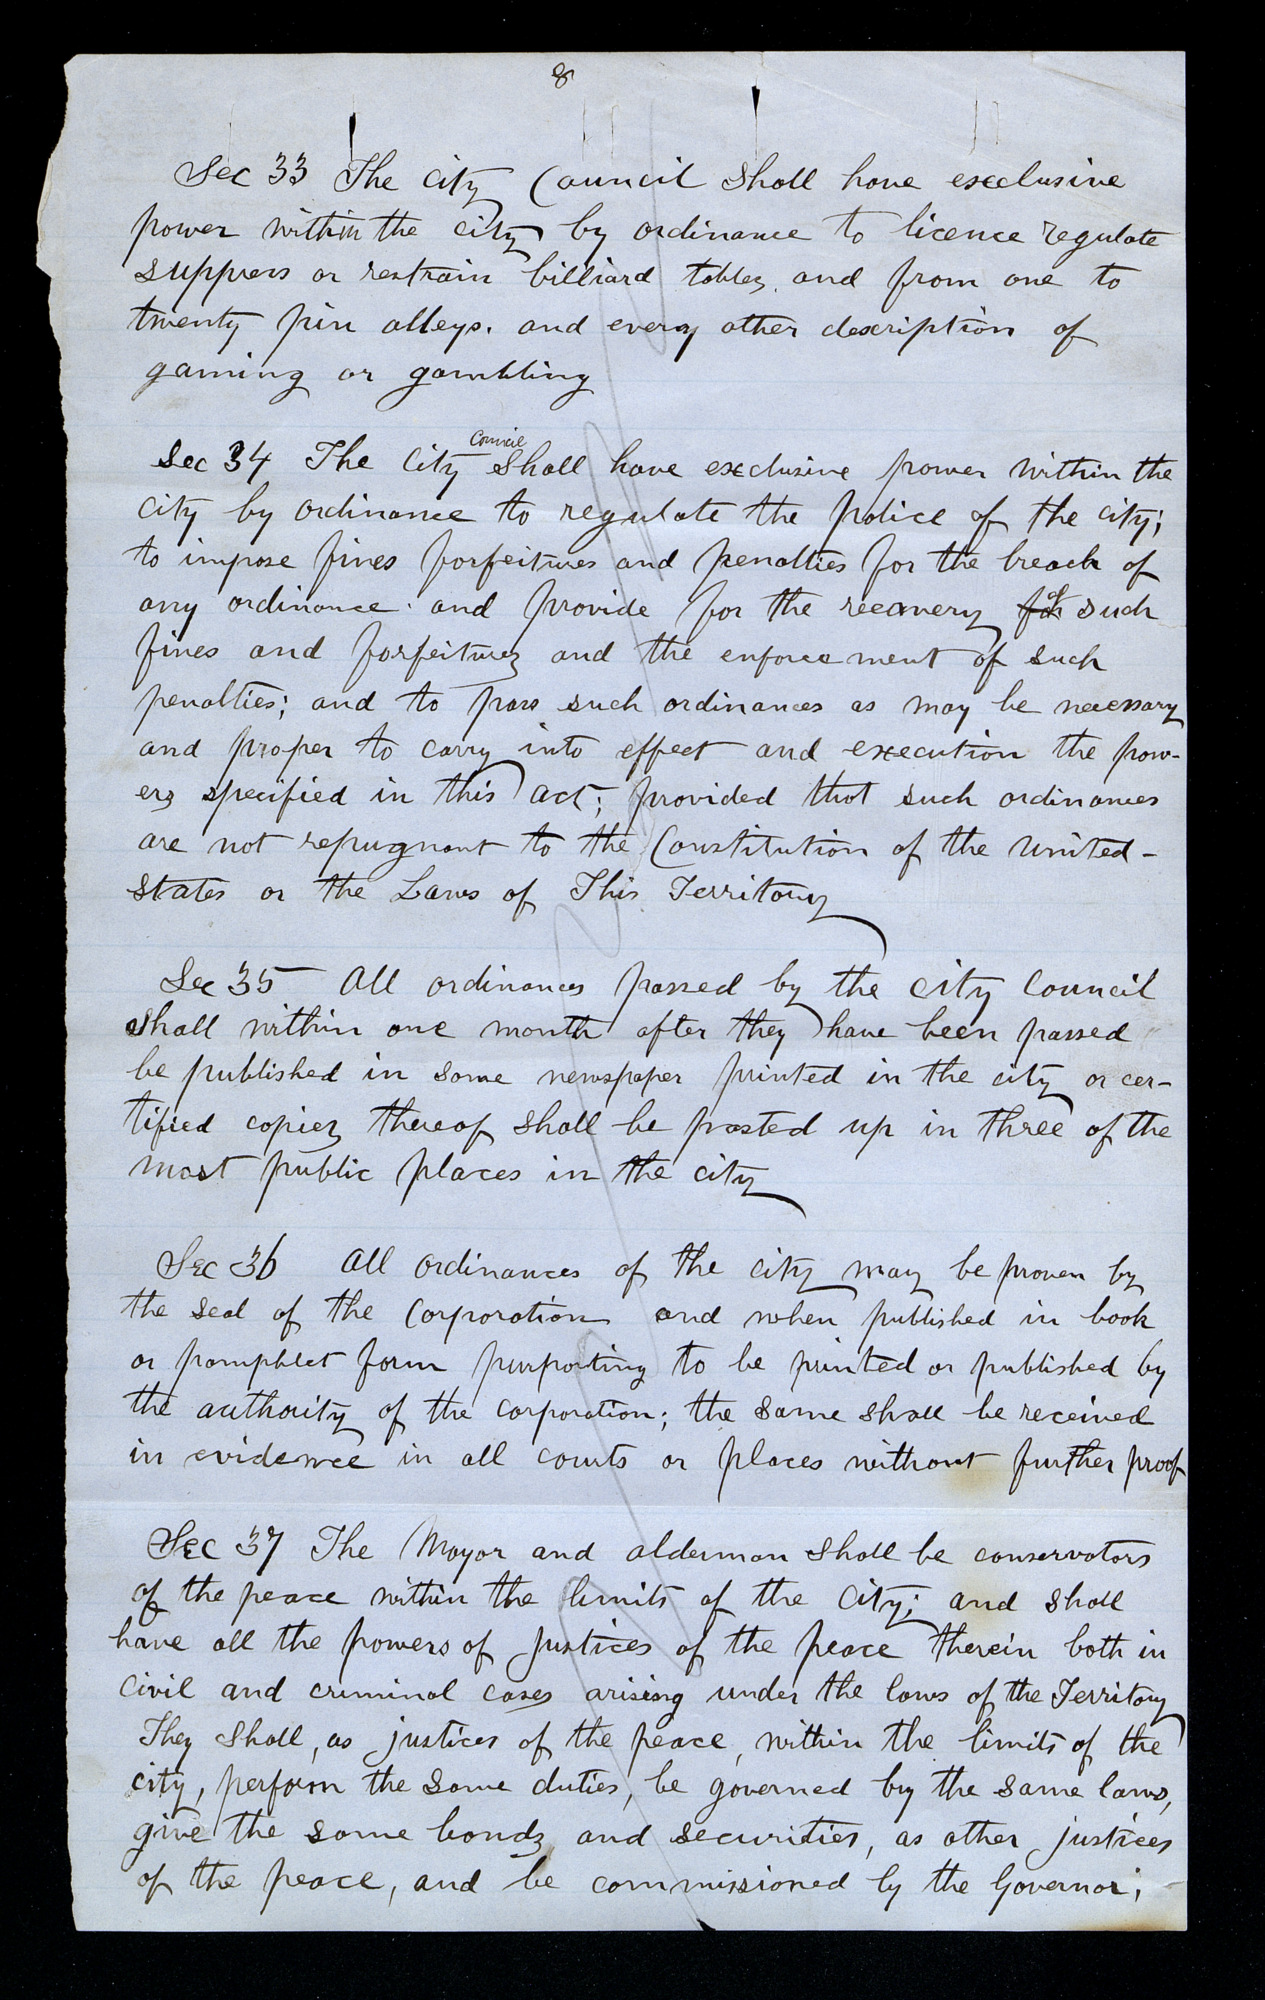 8
Sec 33 The City Council shall have exclusive
power within the city by ordinance to licence regulate
suppress or restrain billiard tables. and from one to
twenty pin alleys. and every other description of
gaming or gambling
Sec 34 The City Council shall have exclusive power within the
city by ordinance to regulate the police of the city;
to impose fines forfeitures and penalties for the breach of
any ordinance. and provide for the recovery of such
fines and forfeitures and the enforcement of such
penalties; and to pass such ordinances as may be necessary
and proper to carry into effect and execution the pow-
ers specified in this act; provided that such ordinances
are not repugnant to the Constitution of the United-
States or the Laws of This Territory
Sec 35 All ordinances passed by the City Council
shall within one month after they have been passed
be published in some newspaper printed in the city or cer-
tified copies thereof shall be posted up in three of the
most public places in the city
Sec 36 All ordinances of the city may be proven by
the seal of the Corporation and when published in book
or pamphlet form purporting to be printed or published by
the authority of the corporation; the same shall be received
in evidence in all courts or places without further proof
Sec 37 The Mayor and alderman shall be conservators
of the peace within the limits of the City; and shall
have all the powers of justices of the peace therein both in
civil and criminal cases arising under the laws of the Territory
They shall, as justices of the peace, within the limits of the
city, perform the same duties, be governed by the same laws,
give the same bonds and securities, as other justices
of the peace, and be commissioned by the Governor;